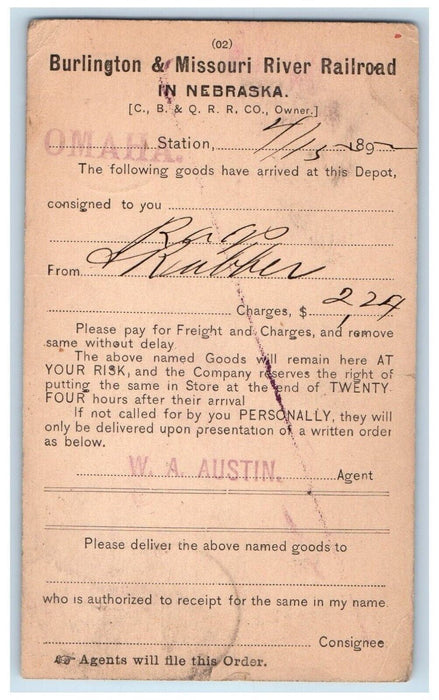 (02)
Burlington & Missouri River Railroad
IN NEBRASKA.
[C., B. & Q. R. R. CO., Owner.]
OMAHA. Station, 4/15 1892
The following goods have arrived at this Depot,
consigned to you
Rags
From & Rubber
Charges, $ 2,24
Please pay for Freight and Charges, and remove
same without delay.
The above named Goods will remain here AT
YOUR RISK, and the Company reserves the right of
putting the same in Store at the end of TWENTY
FOUR hours after their arrival
If not called for by you PERSONALLY, they will
only be delivered upon presentation of a written order
as below.
W. A. AUSTIN. Agent
Please deliver the above named goods to
who is authorized to receipt for the same in my name.
Consignee
Agents will file this Order.